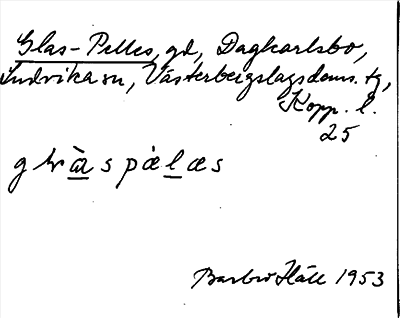 Glas-Pelles, gd, Dagkarlsbo,
Ludvika sn, Västerbergslags doms. tg,
Kopp. l.
25
Barbro Häll 1953